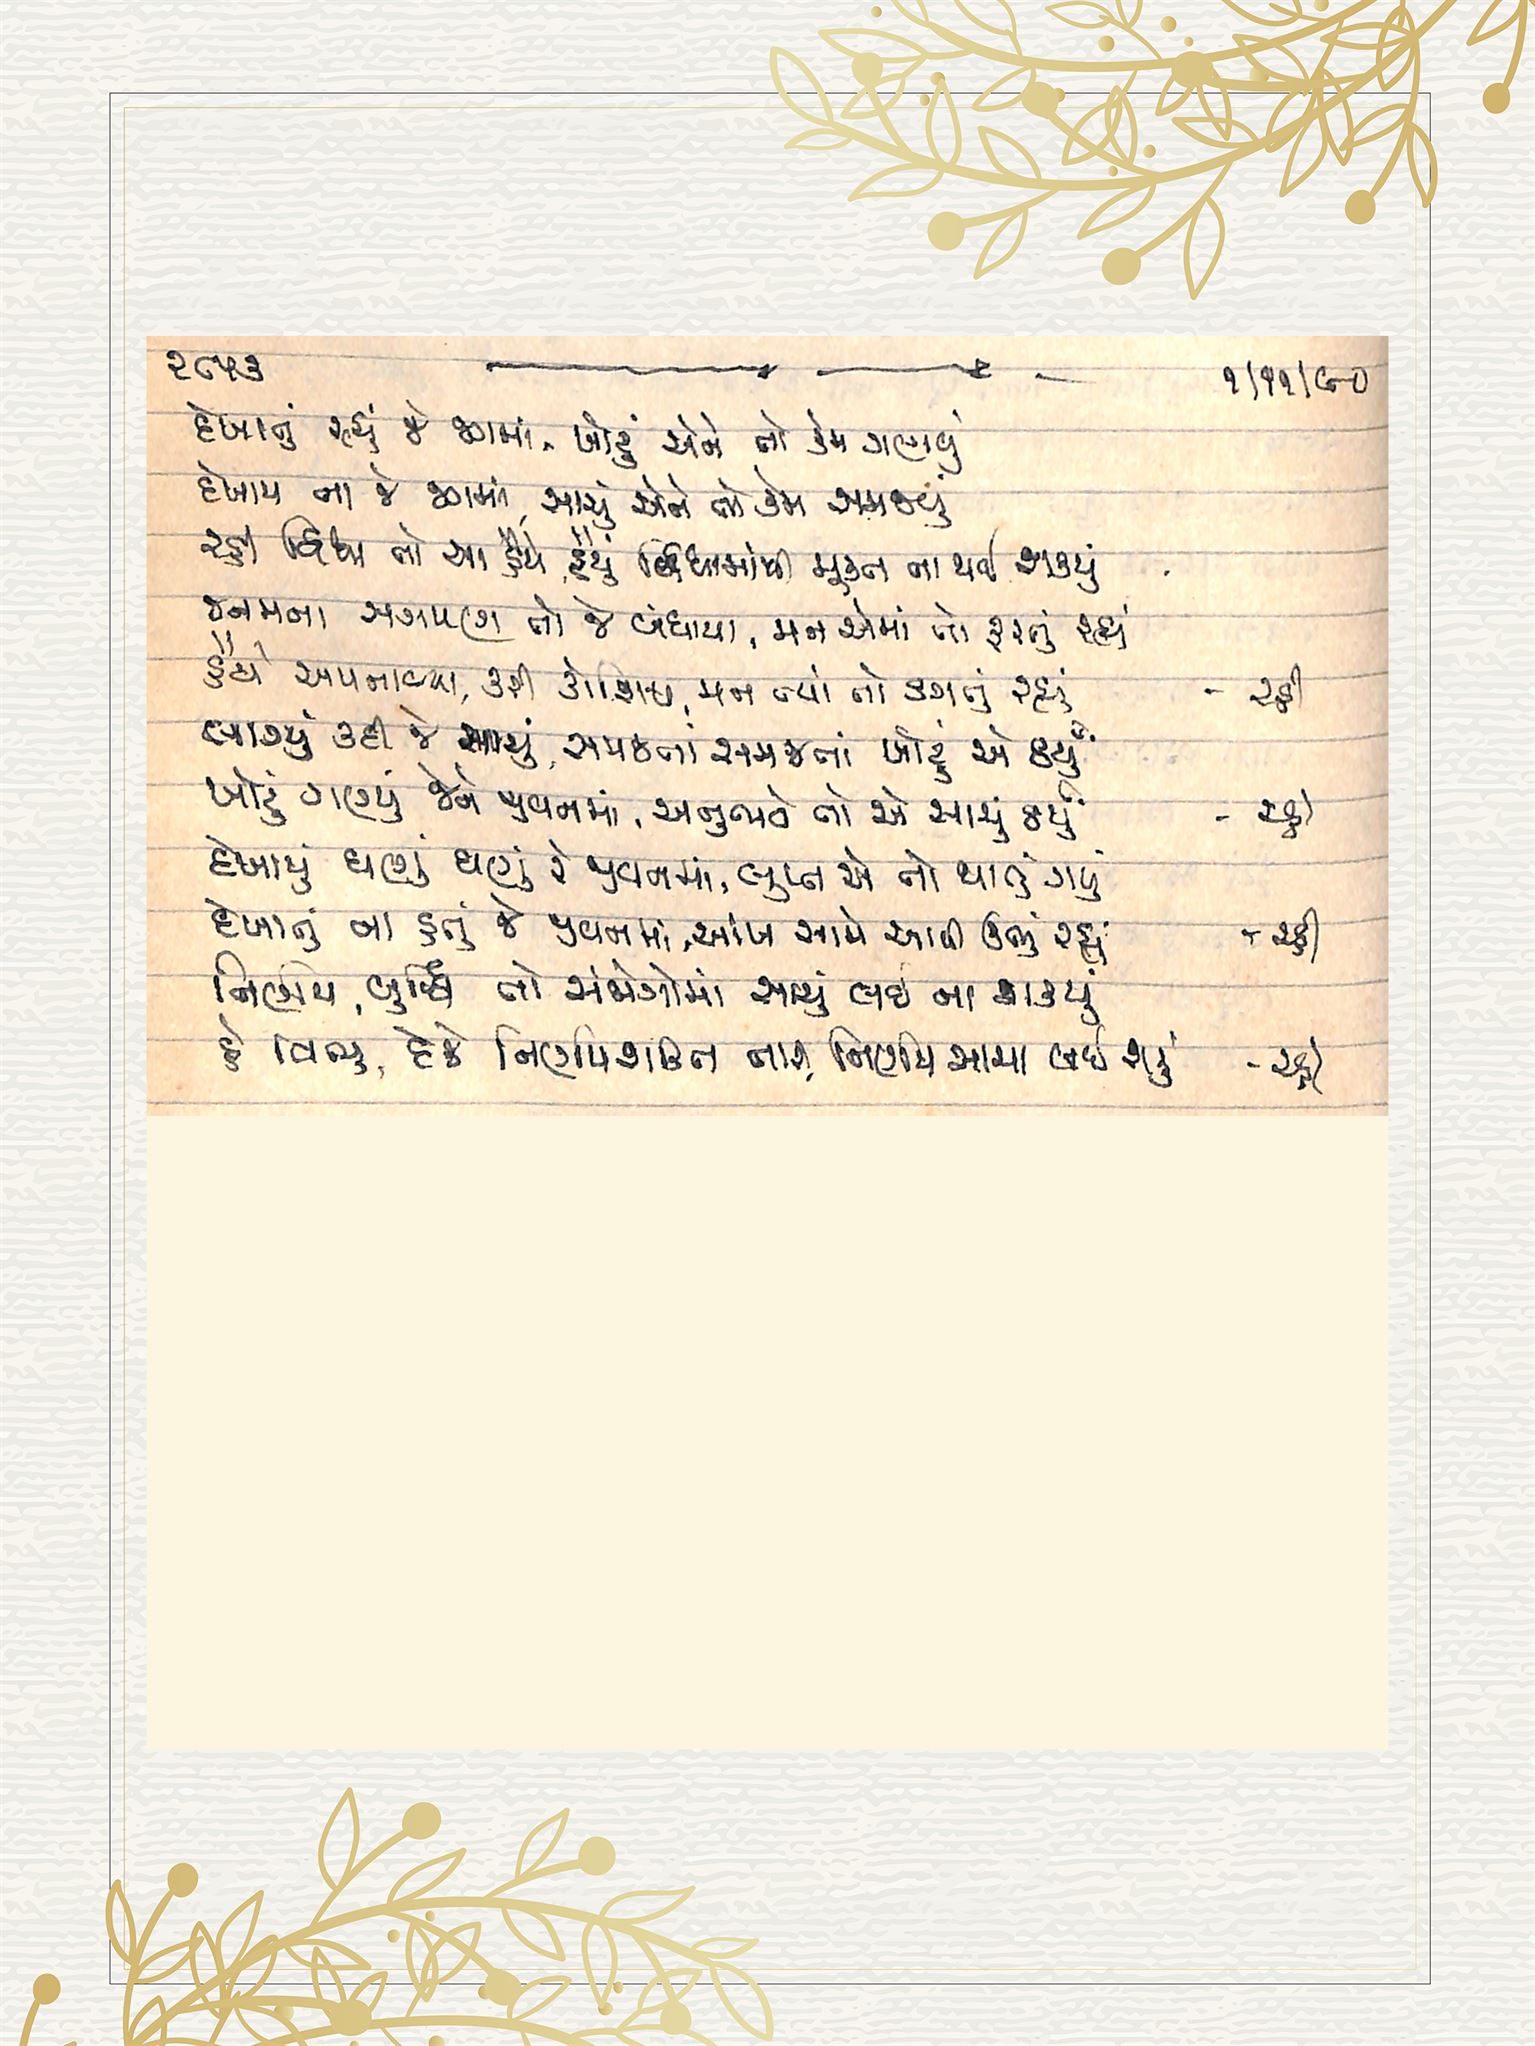 ૨૮૫૩ ૧/૧૧/૯૦
દેખાતું રહ્યું જે જગમાં, ખોટું એને તો કેમ ગણવું
દેખાય ના જે જગમાં, સાચું એને તો કેમ સમજવું
રહી દ્વિધા તો આ હૈયે, હૈયું દ્વિધામાંથી મુક્ત ના થઈ શક્યું
જનમના સગપણ તો જે બંધાયા, મન એમાં તો ફરતું રહ્યું
હૈયે અપનાવ્યા, કરી કોશિશ, મન ત્યાં તો ડગતું રહ્યું - રહી
લાગ્યું કદી જે સાચું, સમજનાં સમજતાં ખોટું એ ઠર્યું
ખોટું ગણ્યું જેને જીવનમાં, અનુભવે તો એ સાચું ઠર્યું - રહી
દેખાયું ઘણું ઘણું રે જીવનમાં, લુપ્ત એ તો થાતું ગયું
દેખાતું ના હતું જે જીવનમાં, આંખ સામે આવી ઊભું રહ્યું - રહી
નિર્ણય, બુદ્ધિ તો સંજોગોમાં સાચું લઈ ના શક્યું
હે વિભુ, દેજે નિર્ણયશક્તિ તારી, નિર્ણય સાચા લઈ શકું - રહી